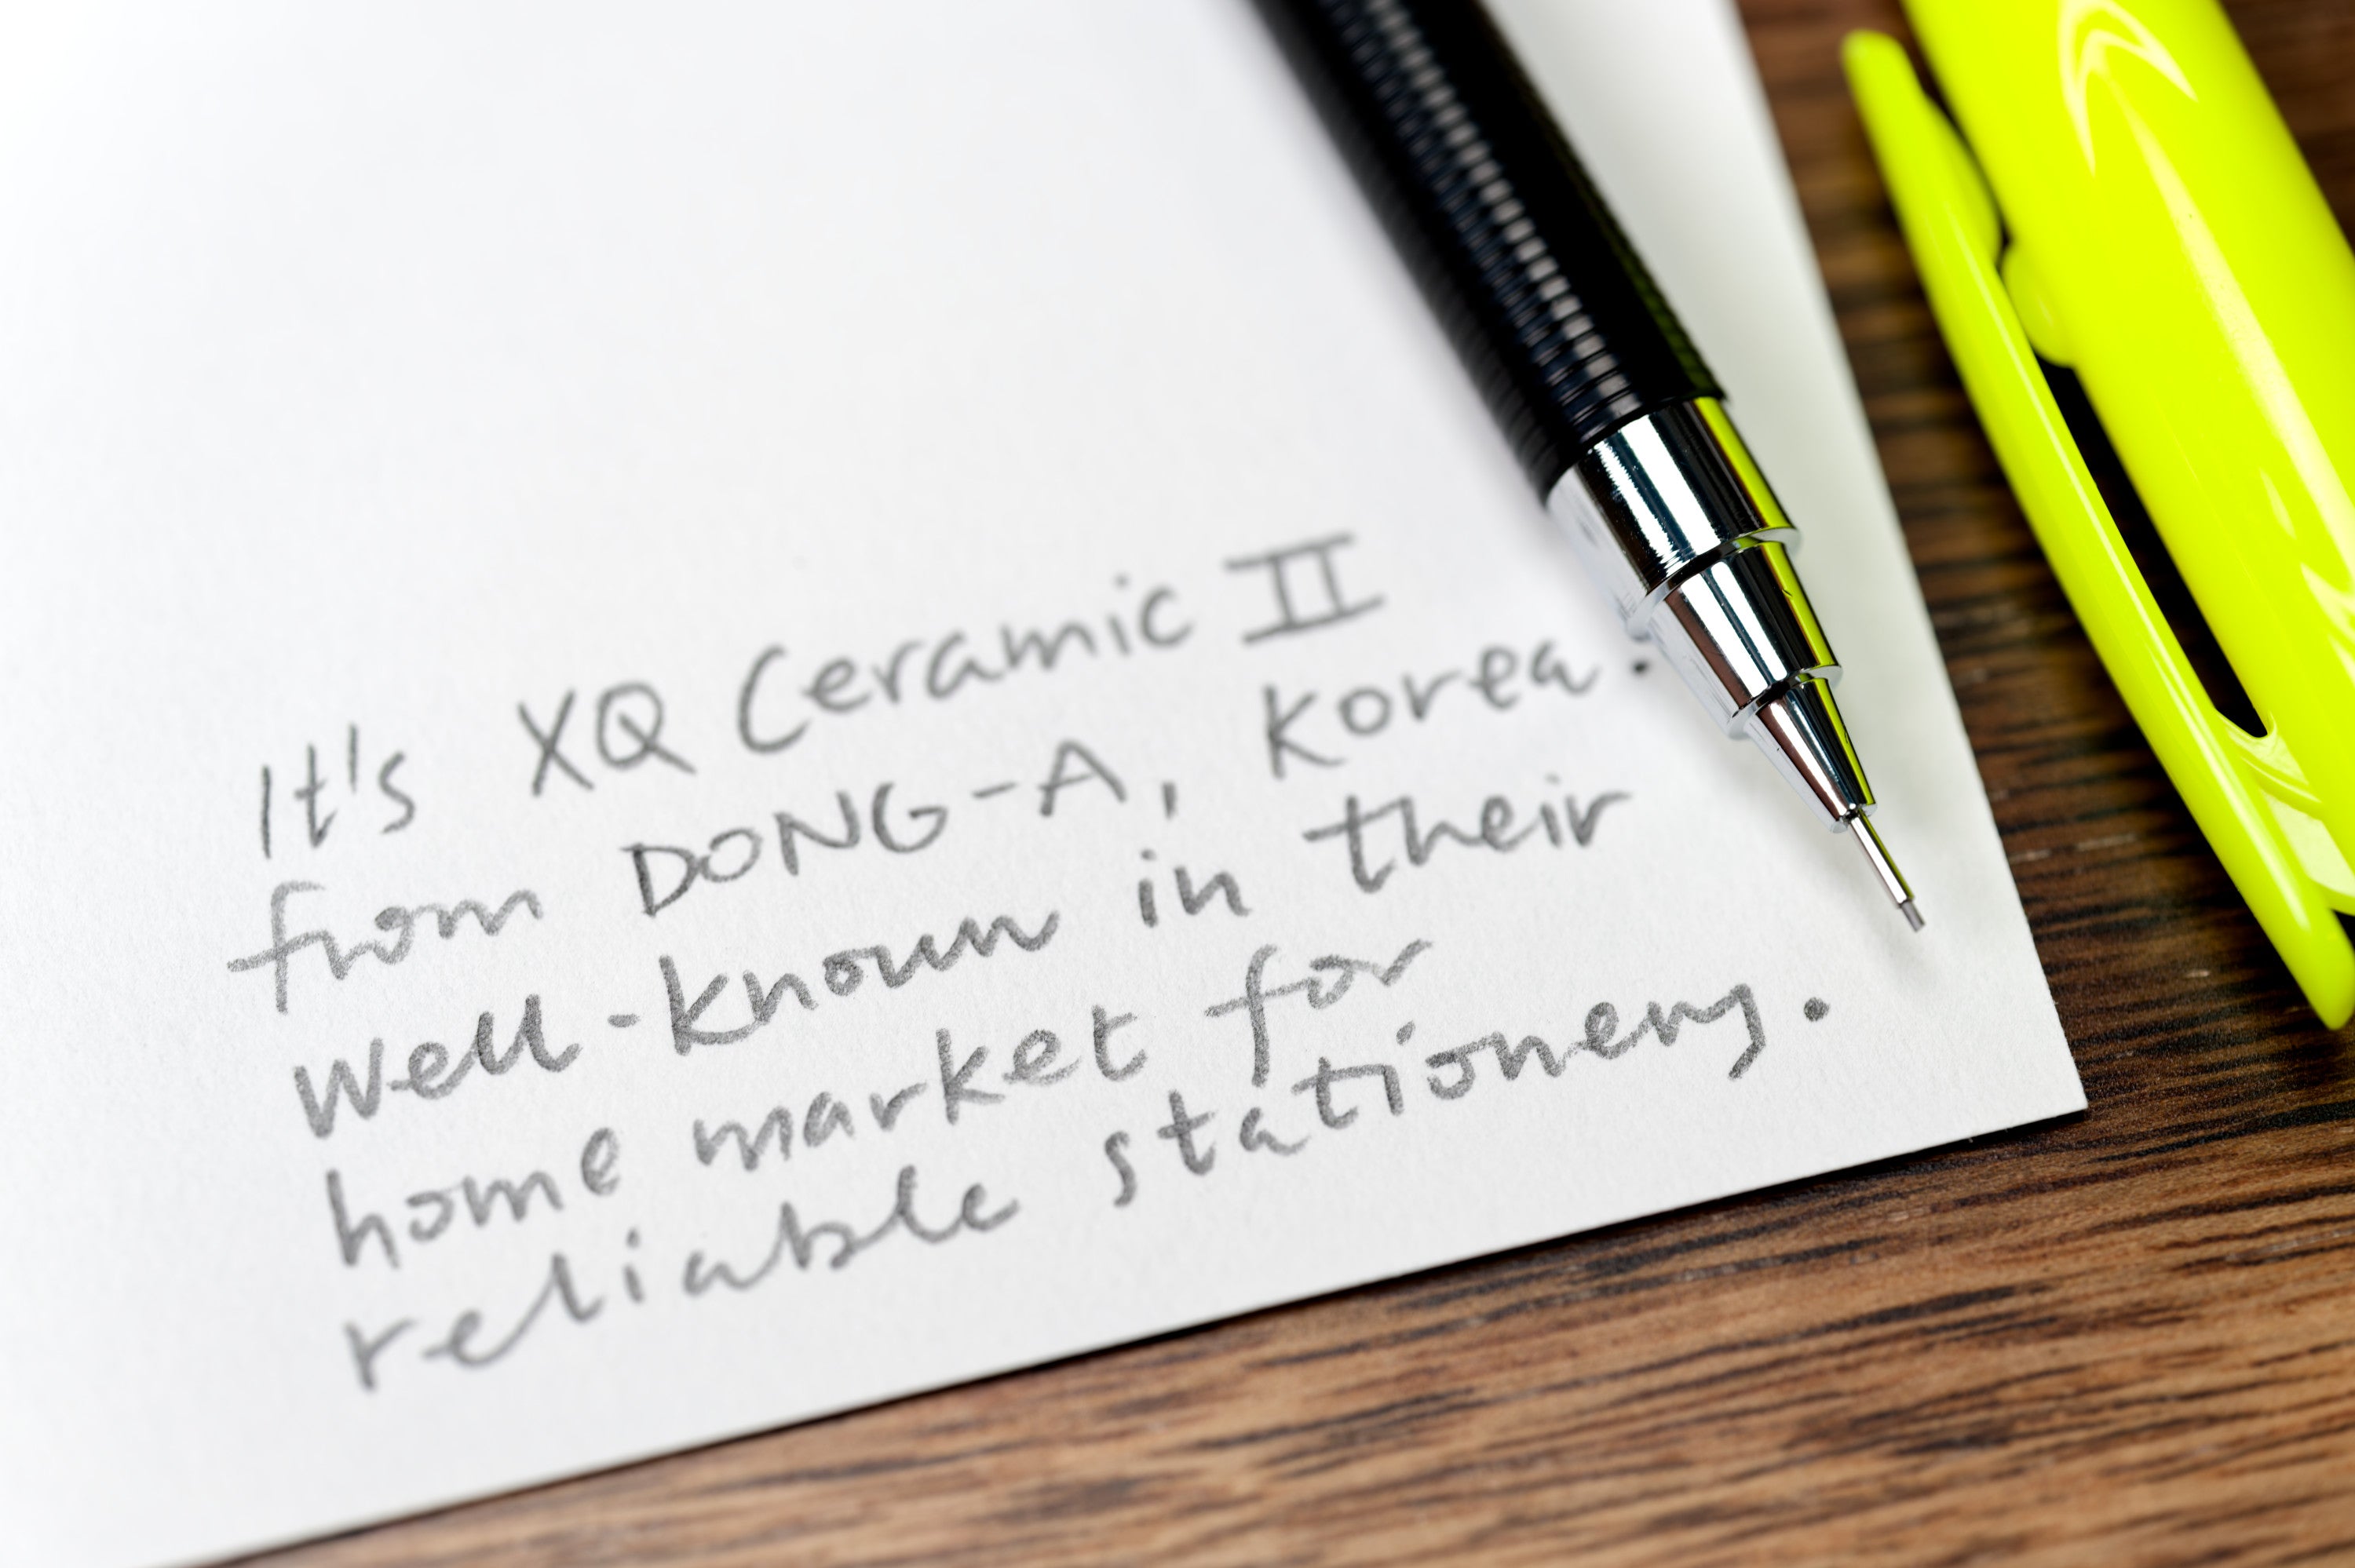 It's XQ Ceramic II
from DONG-A, Korea.
Well-known in their
home market for
reliable stationery.